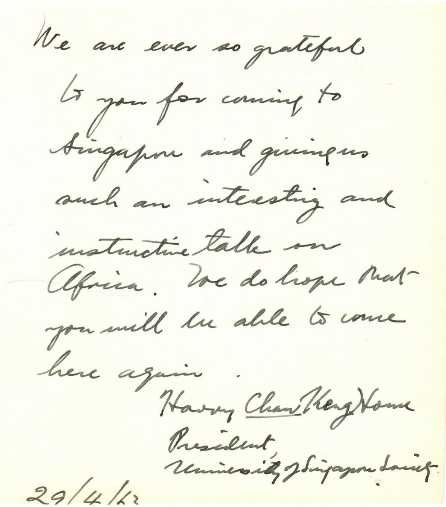 We are ever so grateful
to you for coming to
Singapore and giving us
such an interesting and
instructive talk on
Africa. We do hope that
you will be able to come
here again.
Harry Chan Keng Howe
President,
University of Singapore Society.
29/4/62